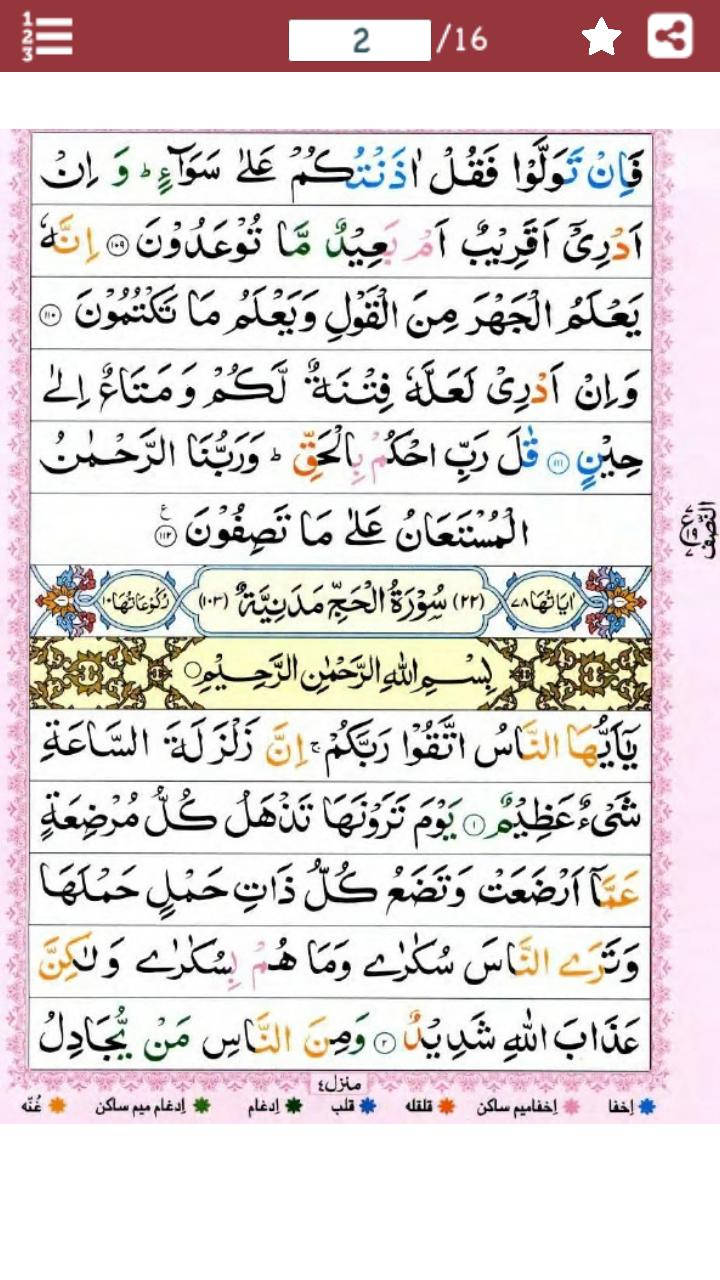 1
2
3
2 /16
فَاِنْ تَوَلَّوْا فَقُلْ اٰذَنْتُكُمْ عَلٰى سَوَآءٍ ؕ وَ اِنْ
اَدْرِىْۤ اَقَرِيْبٌ اَمْ بَعِيْدٌ مَّا تُوْعَدُوْنَ ۱۰۹ اِنَّهٗ
يَعْلَمُ الْجَهْرَ مِنَ الْقَوْلِ وَيَعْلَمُ مَا تَكْتُمُوْنَ ۱۱۰
وَاِنْ اَدْرِىْ لَعَلَّهٗ فِتْنَةٌ لَّكُمْ وَمَتَاعٌ اِلٰى
حِيْنٍ ۱۱۱ قٰلَ رَبِّ احْكُمْ بِالْحَقِّ ؕ وَرَبُّنَا الرَّحْمٰنُ
الْمُسْتَعَانُ عَلٰى مَا تَصِفُوْنَ ۱۱۲ ع
النّصف
اٰيَاتُهَا ۷۸ (۲۲) سُوْرَةُ الْحَجِّ مَدَنِيَّةٌ (۱۰۳) رُكُوْعَاتُهَا ۱۰
بِسْمِ اللهِ الرَّحْمٰنِ الرَّحِيْمِ
يٰۤاَيُّهَا النَّاسُ اتَّقُوْا رَبَّكُمْ ۚ اِنَّ زَلْزَلَةَ السَّاعَةِ
شَىْءٌ عَظِيْمٌ ۱ يَوْمَ تَرَوْنَهَا تَذْهَلُ كُلُّ مُرْضِعَةٍ
عَمَّاۤ اَرْضَعَتْ وَتَضَعُ كُلُّ ذَاتِ حَمْلٍ حَمْلَهَا
وَتَرَى النَّاسَ سُكٰرٰى وَمَا هُمْ بِسُكٰرٰى وَلٰكِنَّ
عَذَابَ اللهِ شَدِيْدٌ ۲ وَمِنَ النَّاسِ مَنْ يُّجَادِلُ
منزل۴
اِخفا اِخفامیم ساکن قلقله قلب اِدغام اِدغام میم ساکن غُنّه